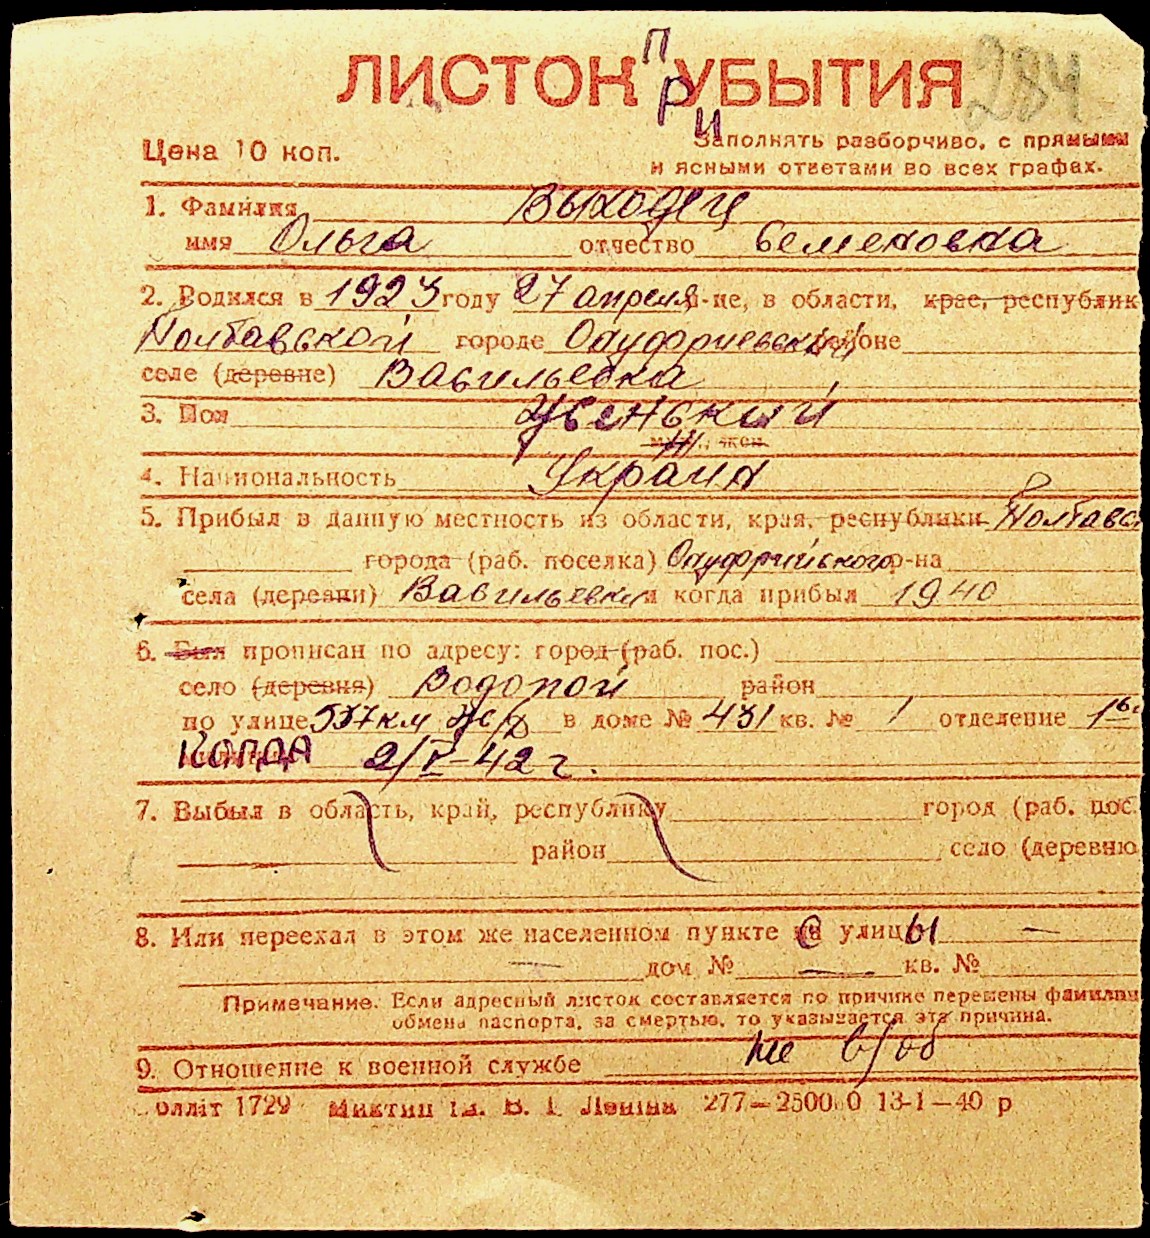 ЛИСТОК ПРИ УБЫТИЯ 284
Цена 10 коп.
Заполнять разборчиво, с прямыми
и ясными ответами во всех графах.
1. Фамилия Выходец
имя Ольга отчество Семеновна
2. Родился в 1923 году 27 апреля й-не, в области, крае, республик
Полтавской городе Онуфриевский районе
селе (деревне) Васильевка
3. Пол Женский
муж., жен.
4. Национальность Украин
5. Прибыл в данную местность из области, края, республики Полтавс
города (раб. поселка) Онуфрийского р-на
села (деревни) Васильевки и когда прибыл 1940
6. Был прописан по адресу: город (раб. пос.)
село (деревня) Водопой район
по улице 537 км ж/д в доме № 431 кв. № 1 отделение 1
Когда 2/V-42 г.
7. Выбыл в область, край, республику город (раб. пос.
район село (деревню
8. Или переехал в этом же населенном пункте с улицы —
— дом № — кв. №
Примечание. Если адресный листок составляется по причине перемены фамилии
обмена паспорта, за смертью, то указывается эта причина.
9. Отношение к военной службе не в/об
оллiт 1729 Ленiна 277—2500 0 13-1—40 р